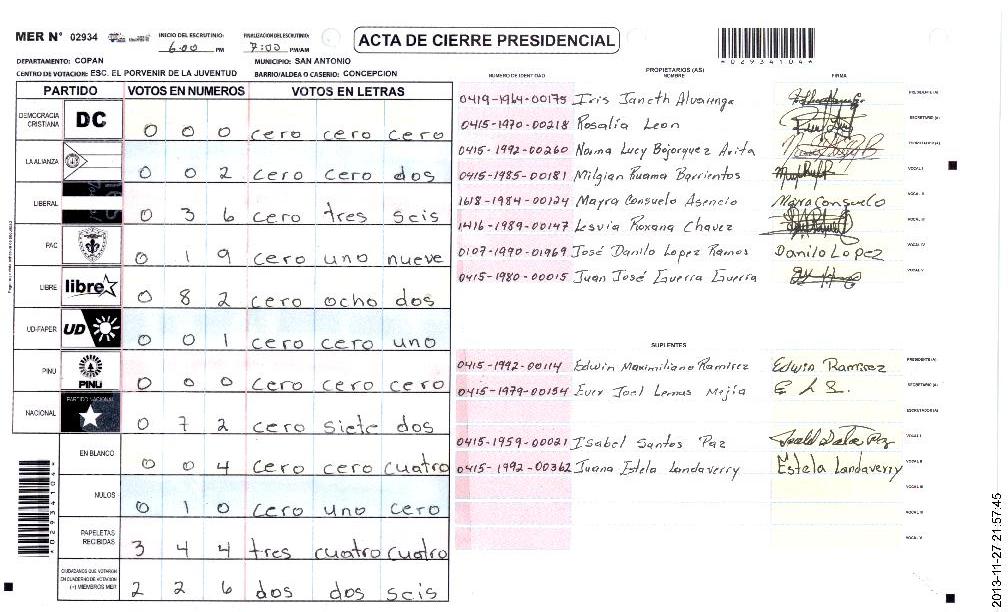 MER N° 02934 INICIO DEL ESCRUTINIO: 6:00 PM FINALIZACION DEL ESCRUTINIO: 7:00 PM/AM
ACTA DE CIERRE PRESIDENCIAL
*02934104*
DEPARTAMENTO: COPAN MUNICIPIO: SAN ANTONIO
CENTRO DE VOTACION: ESC. EL PORVENIR DE LA JUVENTUD BARRIO/ALDEA O CASERIO: CONCEPCION
PARTIDO VOTOS EN NUMEROS VOTOS EN LETRAS
DEMOCRACIA CRISTIANA DC 0 0 0 cero cero cero
LA ALIANZA 0 0 2 cero cero dos
LIBERAL 0 3 6 cero tres seis
PAC 0 1 9 cero uno nueve
LIBRE libre 0 8 2 cero ocho dos
UD-FAPER UD 0 0 1 cero cero uno
PINU PINU 0 0 0 cero cero cero
NACIONAL PARTIDO NACIONAL 0 7 2 cero siete dos
EN BLANCO 0 0 4 cero cero cuatro
NULOS 0 1 0 cero uno cero
PAPELETAS RECIBIDAS 3 4 4 tres cuatro cuatro
CIUDADANOS QUE VOTARON EN CUADERNO DE VOTACION (+) MIEMBROS MER 2 2 6 dos dos seis
*02934104*
PROPIETARIOS (AS)
NUMERO DE IDENTIDAD NOMBRE FIRMA
0419-1964-00175 Iris Janeth Alvarenga PRESIDENTE (A)
0415-1970-00218 Rosalía Leon SECRETARIO (A)
0415-1992-00260 Norma Lucy Bojorquez Arita ESCRUTADOR (A)
0415-1985-00181 Milgian Ruama Barrientos VOCAL I
1618-1984-00124 Mayra Consuelo Asencio Mayra Consuelo VOCAL II
1416-1989-00147 Lesvia Roxana Chavez VOCAL III
0107-1990-01969 José Danilo Lopez Ramos Danilo Lopez VOCAL IV
0415-1980-00015 Juan José Guerra Guerra VOCAL V
SUPLENTES
0415-1992-00114 Edwin Maximiliano Ramirez Edwin Ramirez PRESIDENTE (A)
0415-1979-00154 Ever Joel Lemus Mejía SECRETARIO (A)
ESCRUTADOR (A)
0415-1959-00021 Isabel Santos Paz VOCAL I
0415-1992-00362 Juana Estela Landaverry Estela Landaverry VOCAL II
VOCAL III
VOCAL IV
VOCAL V
2013-11-27 21:57:45